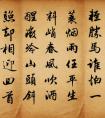 輕勝馬誰怕一
蓑烟雨任平生
料峭春風吹酒
醒微冷山頭斜
照却相迎回首